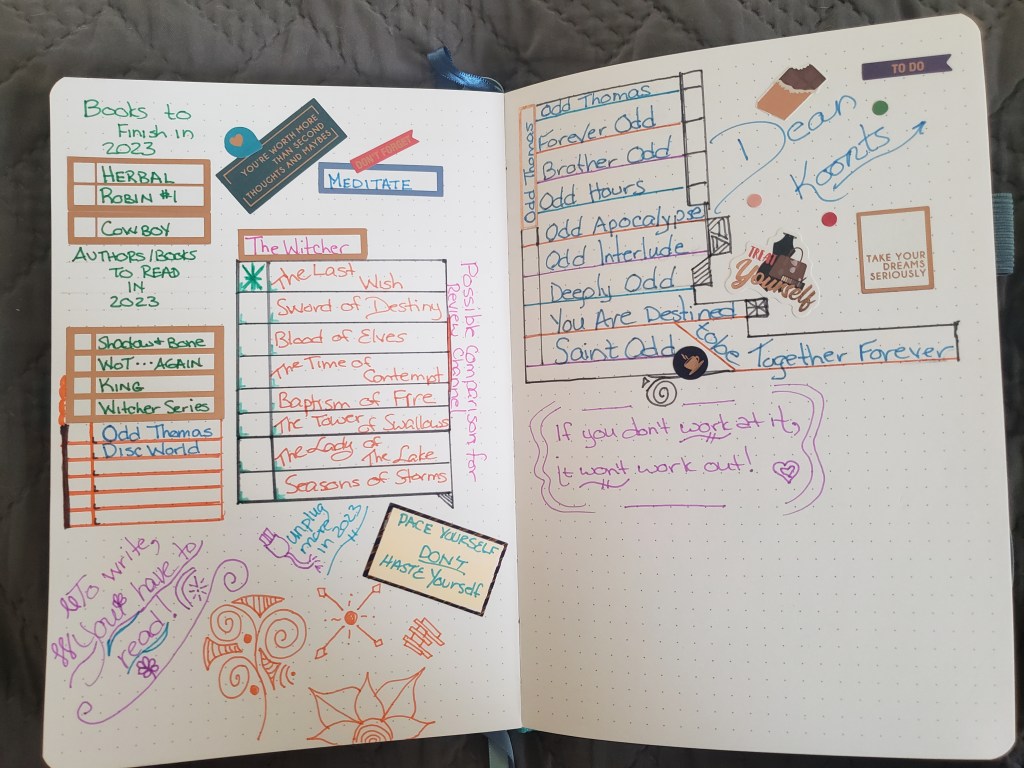 Books to
Finish in
2023
HERBAL
ROBIN #1
COWBOY
AUTHORS/BOOKS
TO READ
IN
2023
Shadow & Bone
WOT...AGAIN
KING
WITCHER SERIES
Odd Thomas
Disc World
YOU'RE WORTH MORE
THAN SECOND
THOUGHTS AND MAYBES
DON'T FORGET
MEDITATE
The Witcher
The Last
Wish
Sword of Destiny
Blood of Elves
The Time of
Contempt
Baptism of Fire
The Tower
of Swallows
The Lady of
The Lake
Seasons of Storms
Possible Comparison for
Review Channel
To write,
you have to
read!
unplug
more
in 2023
PACE YOURSELF
DON'T
HASTE YOURSELF
Odd Thomas
Odd Thomas
Forever Odd
Brother Odd
Odd Hours
Odd Apocalypse
Odd Interlude
Deeply Odd
You Are Destined
to be
Together Forever
Saint Odd
TO DO
Dean
Koonts
TREAT
Yourself
TAKE YOUR
DREAMS
SERIOUSLY
If you don't work at it,
It won't work out!